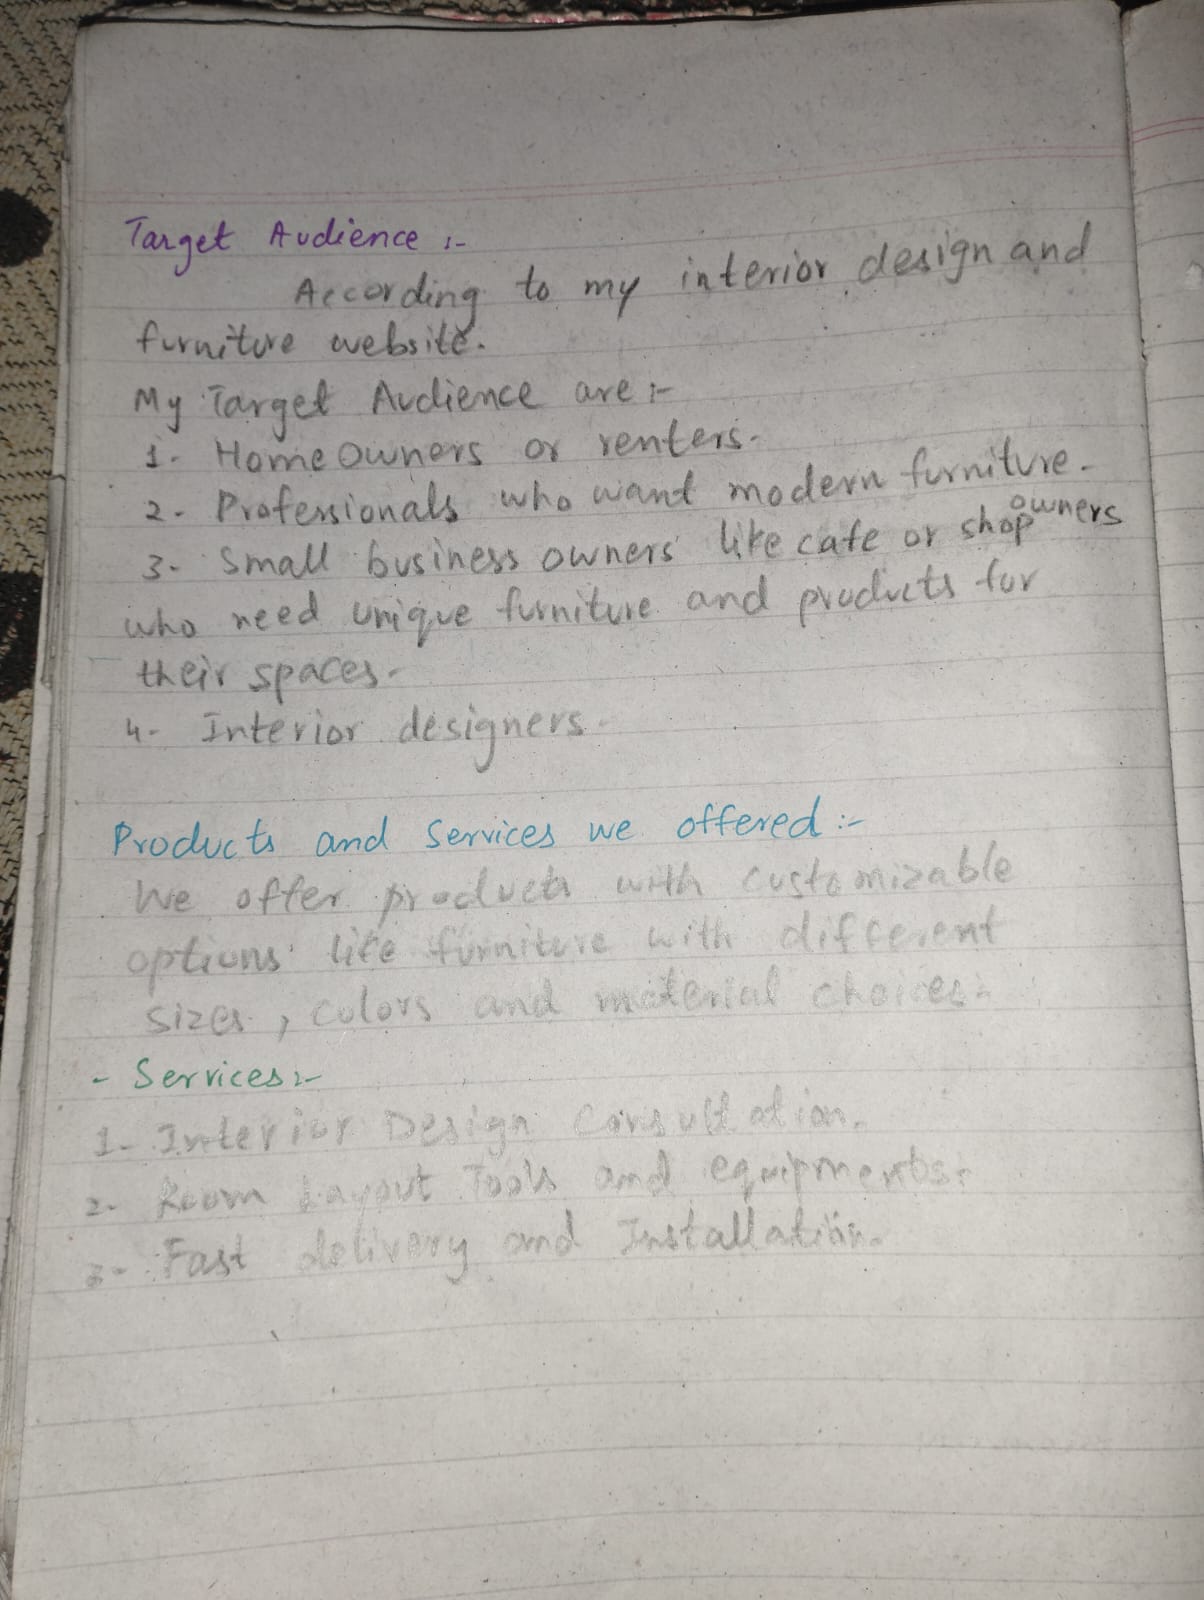 Target Audience :-
According to my interior design and
furniture website.
My Target Audience are :-
1. Home Owners or renters.
2. Professionals who want modern furniture.
3. Small business owners like cafe or shop owners
who need unique furniture and products for
their spaces.
4. Interior designers.
Products and Services we offered :-
We offer products with customizable
options like furniture with different
sizes, colors and material choices.
- Services :-
1- Interior Design Consultation.
2- Room Layout Tools and equipments.
3- Fast delivery and Installation.